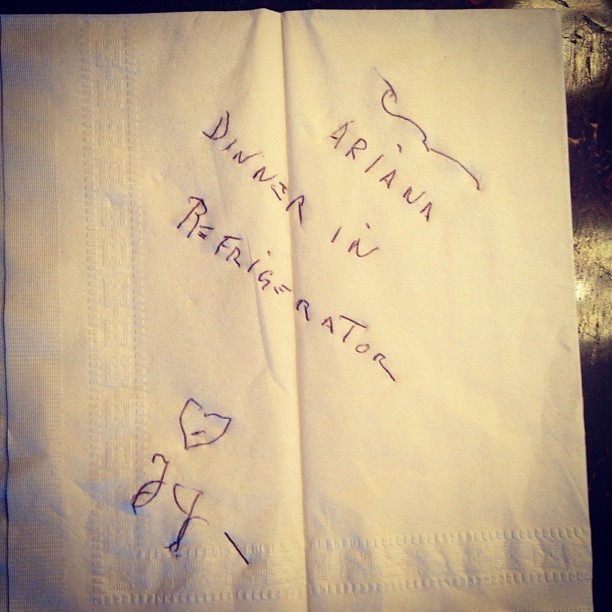 ARIANA
DINNER IN
REFRIGERATOR